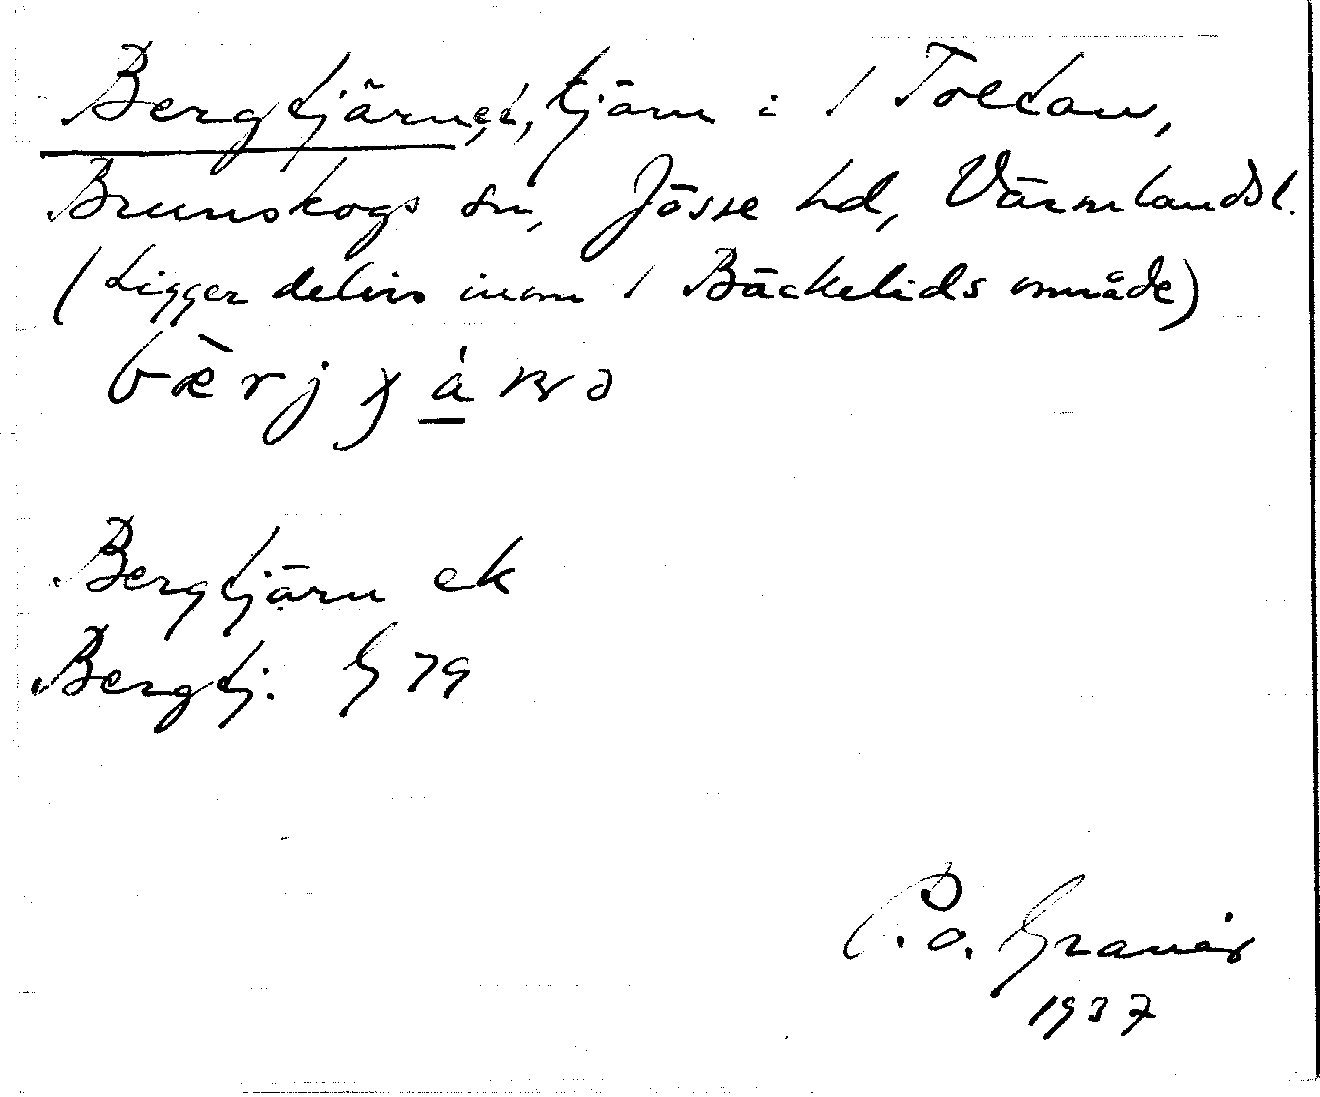 Bergtjärnet, tjärn i / Toltan,
Brunskogs sn, Jösse hd, Värmlands l.
(Ligger delvis inom / Bäckelids område)
Bergtjärn ek
Bergtj. G 79
P.O. Granér
1937